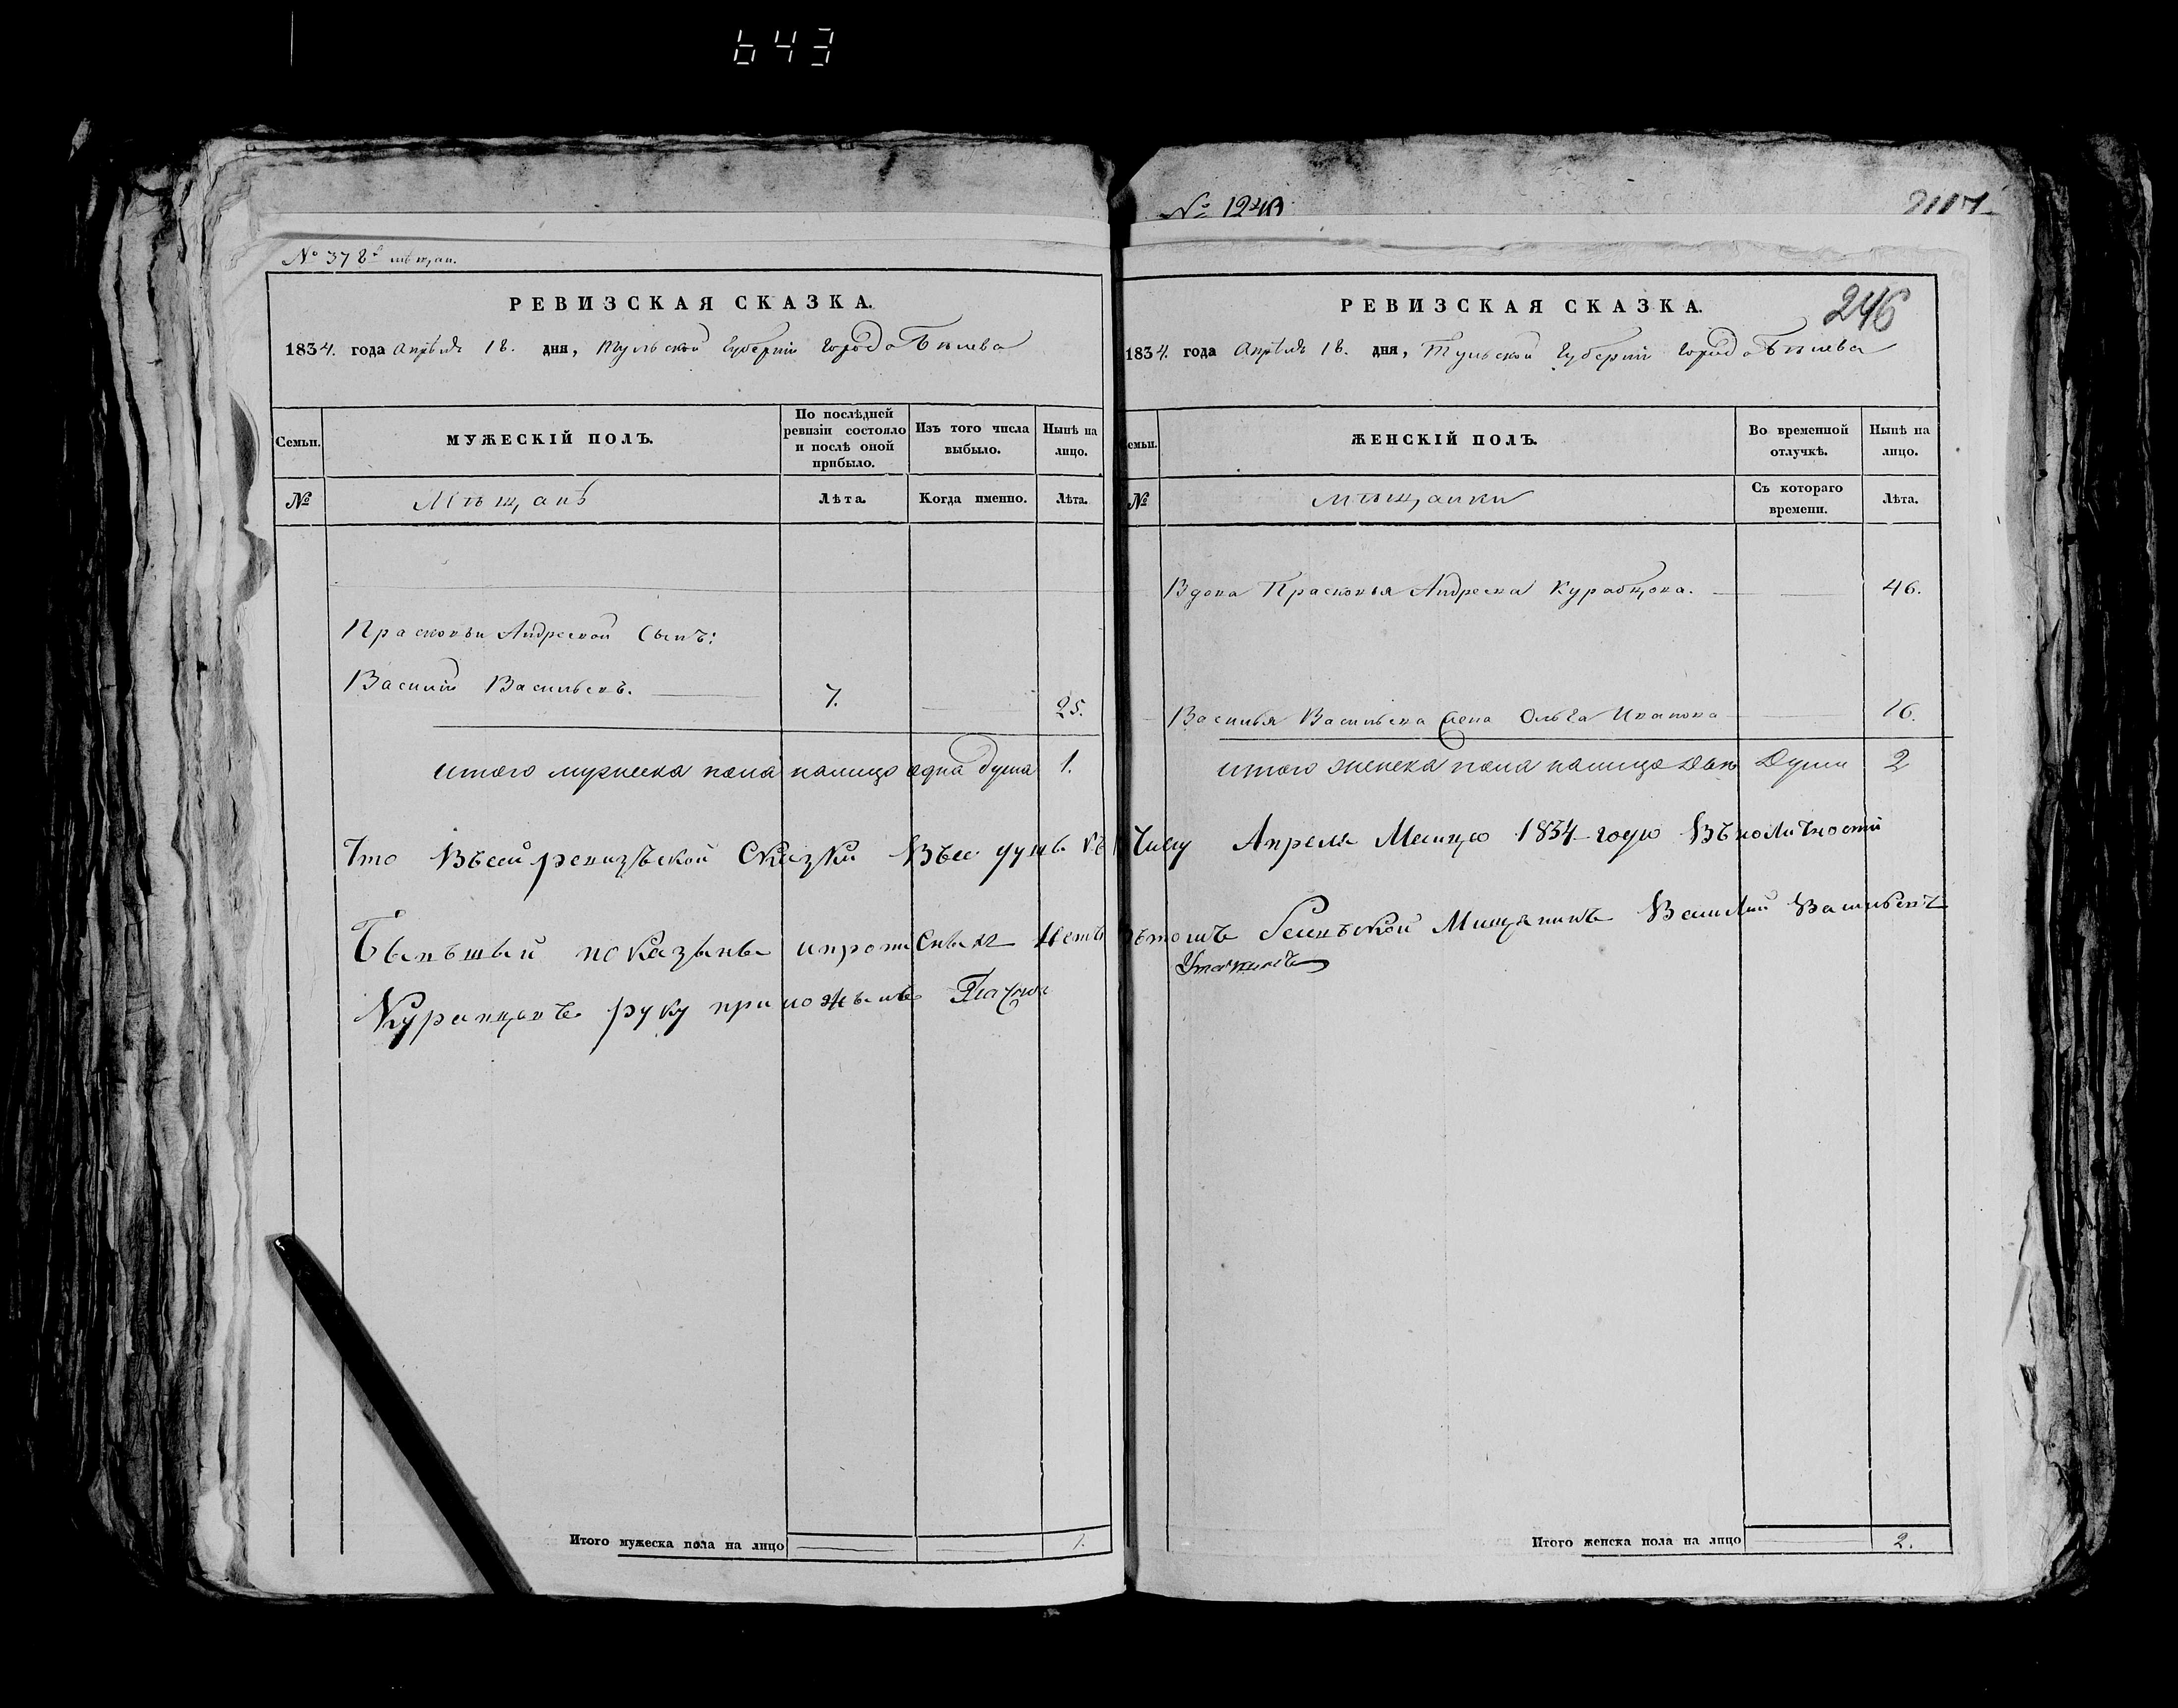 643
№ 1240
№ 378 мѣщан.
РЕВИЗСКАЯ СКАЗКА.
1834. года Апрѣля 18. дня, Тульской Губерніи города Бѣлева
Семьи. МУЖЕСКІЙ ПОЛЪ. По послѣдней ревизіи состояло и послѣ оной прибыло. Изъ того числа выбыло. Нынѣ на лицо.
№ Мѣщанѣ Лѣта. Когда именно. Лѣта.
Прасковьи Андревой Сынъ:
Василій Васильевъ. 7. 25.
итого мужеска пола налицо одна душа 1.
Итого мужеска пола на лицо 1.
РЕВИЗСКАЯ СКАЗКА.
246
1834. года Апрѣля 18. дня, Тульской Губерніи города Бѣлева
Семьи. ЖЕНСКІЙ ПОЛЪ. Во временной отлучкѣ. Нынѣ на лицо.
№ мѣщанки Съ котораго времени. Лѣта.
Вдова Прасковья Андрева Куравцова. 46.
Василья Васильева жена Ольга Иванова 26.
итого женска пола налицо двѣ Души 2
Итого женска пола на лицо 2.
Что Въсей ревизъской Сказки Въсе душѣ къ 1 Числу Апреля Месицю 1834 году Въналичности
Бывъшыи показаны ипрописныхъ нетъ Вътомъ Белевъской Мищянинъ Василий Васильевъ
Куравцовъ руку приложылъ